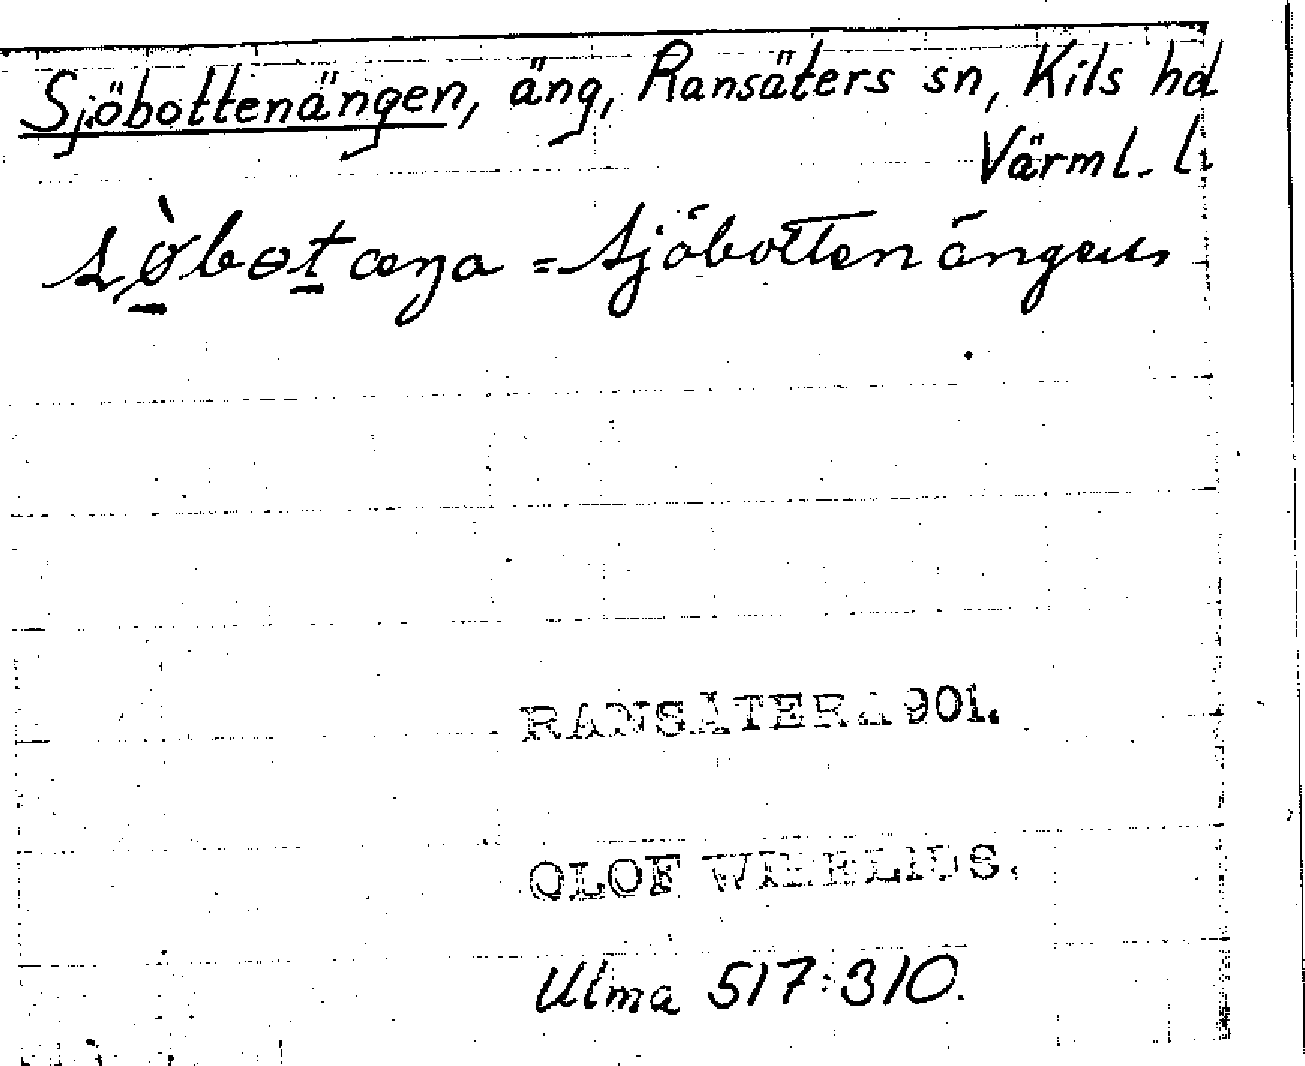 Sjöbottenängen, äng, Ransäters sn, Kils hd
Värml. l.
= Sjöbottenängen
RANSÄTER 1901.
OLOF
Ulma 517:310.